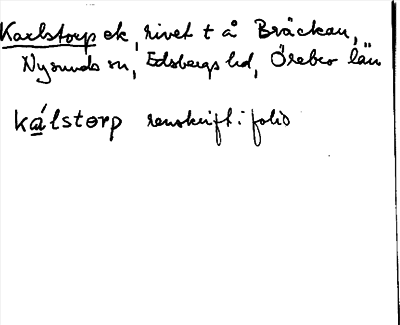 Karlstorp ek, rivet t å Bräckan,
Nysunds sn, Edsbergs hd, Örebro län
kálstɵrp renskrift i folio